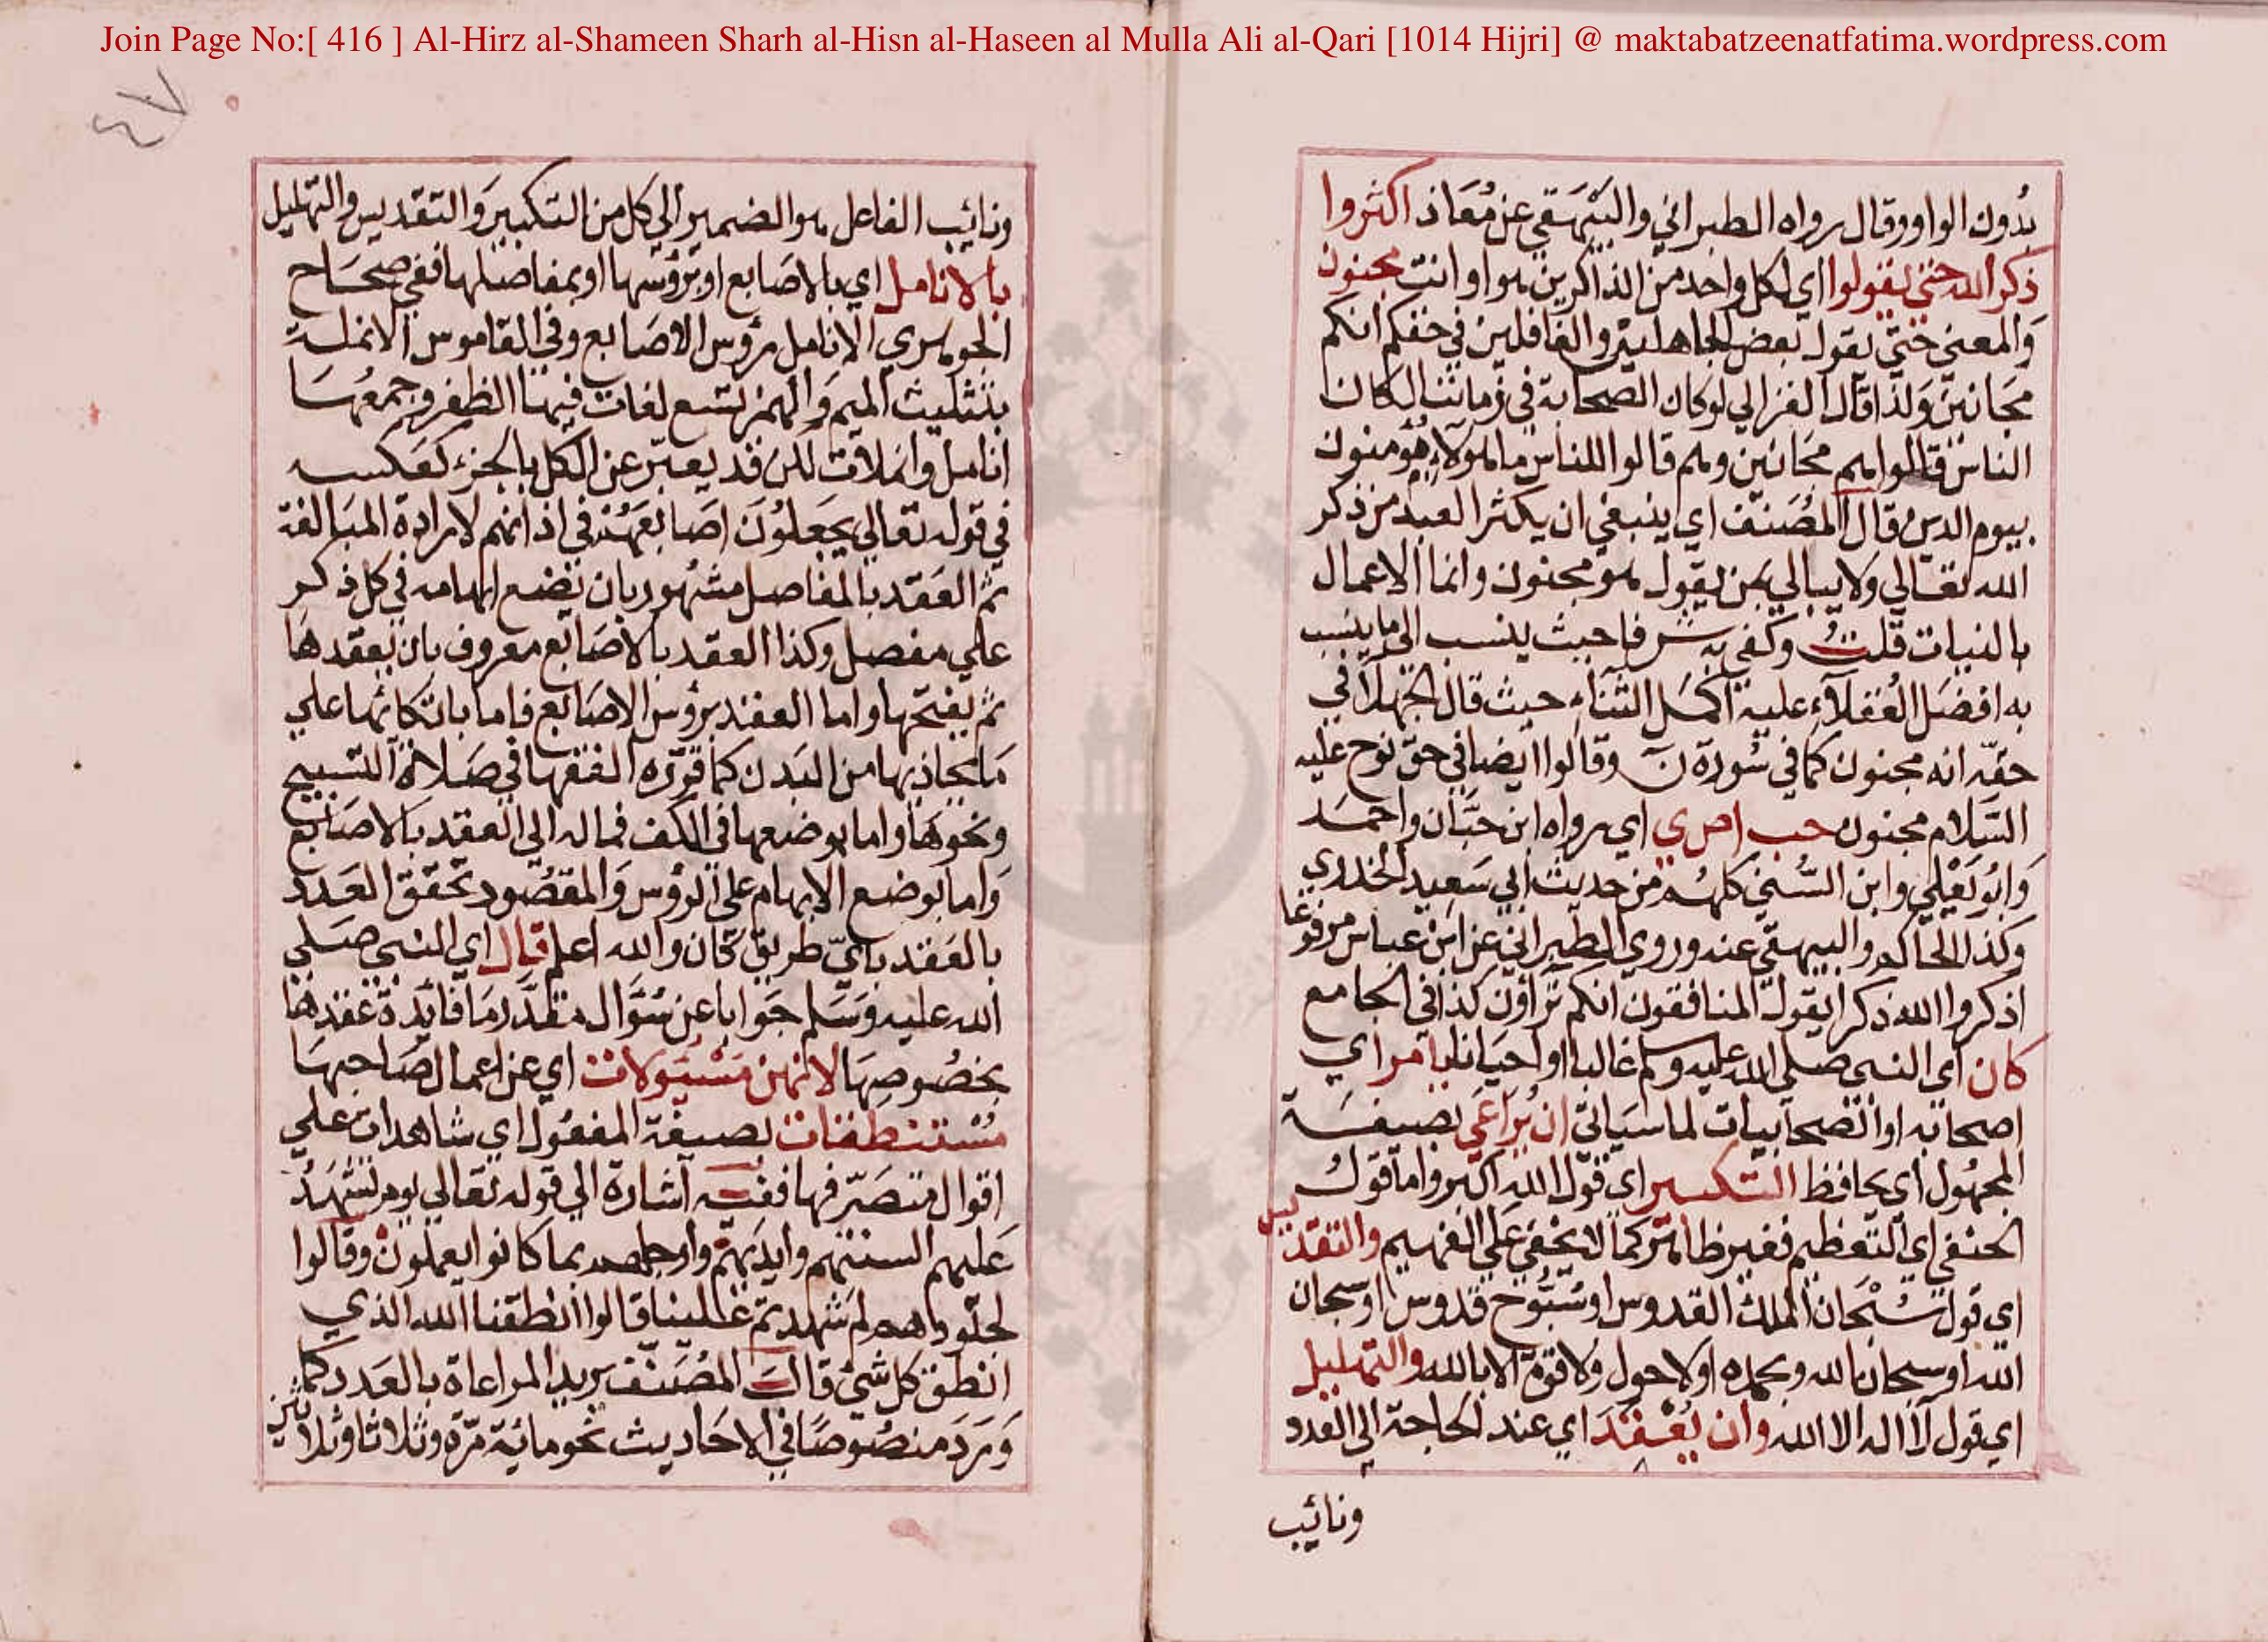 Join Page No:[ 416 ] Al-Hirz al-Shameen Sharh al-Hisn al-Haseen al Mulla Ali al-Qari [1014 Hijri] @ maktabatzeenatfatima.wordpress.com
بدون الواو وقال رواه الطبراني والبيهقي عن معاذ اكثروا
ذكر الله حتى يقولوا اي لكل واحد من الذاكرين هو او انت مجنون
والمعنى حتى يقول بعض الجاهلين والغافلين في حقكم انكم
مجانين ولذا قال الغزالي لو كان الصحابة في زماننا لكان
الناس قالوا هم مجانين وهم قالوا للناس ما هؤلاء مؤمنون
بيوم الدين قال المصنف اي ينبغي ان يكثر العبد من ذكر
الله تعالي ولا يبالي بمن يقول هو مجنون وانما الاعمال
بالنيات قلت وكفى به شرفا حيث ينسب الى ما ينسب
به افضل العقلاء عليه اكمل الثناء حيث قال الجهلا في
حقه انه مجنون كما في سورة ن وقالوا ايضا في حق نوح عليه
السلام مجنون حب ا ص ي اي رواه ابن حبان واحمد
وابو يعلي وابن السني كلهم من حديث ابي سعيد الخدري
وكذا الحاكم والبيهقي عنه وروي الطبراني عن ابن عباس مرفوعا
اذكروا الله ذكرا يقول المنافقون انكم تراؤن كذا في الجامع
كان اي النبي صلي الله عليه وسلم غالبا او احيانا يامر اي
اصحابه او الصحابيات لما سياتي ان يراعى بصيغة
المجهول اي يحافظ التكبير اي قول الله اكبر واما قول
الحنفي اي التعظيم فغير ظاهر كما لا يخفى على الفهيم والتقديس
اي قول سبحان الملك القدوس او سبوح قدوس او سبحان
الله او سبحان الله وبحمده او لا حول ولا قوة الا بالله والتهليل
اي قول لا اله الا الله وان يعقد اي عند الحاجة الى العدد
ونائب
٤٧
ونائب الفاعل هو الضمير الي كل من التكبير والتقديس والتهليل
بالانامل اي بالاصابع او برؤسها او بمفاصلها ففي صحاح
الجوهري الانامل رؤس الاصابع وفي القاموس الانملة
بتثليث الميم والهمز تسع لغات فيها الظفر وجمعها
انامل وانملات لكن قد يعبر عن الكل بالجزء كعكسه
في قوله تعالي يجعلون اصابعهم في اذانهم لارادة المبالغة
ثم العقد بالمفاصل مشهور بان يضع ابهامه في كل ذكر
علي مفصل وكذا العقد بالاصابع معروف بان يعقدها
ثم يفتحها واما العقد برؤس الاصابع فاما باتكائها علي
ما يحاذيها من البدن كما قرره الفقها في صلاة التسبيح
ونحوها واما بوضعها في الكف فماله الي العقد بالاصابع
واما بوضع الابهام على الرؤس والمقصود تحقق العدد
بالعقد باي طريق كان والله اعلم قال اي النبي صلي
الله عليه وسلم جوابا عن سؤال مقدر ما فايدة عقدها
بخصوصها لانهن مسئولات اي عن اعمال صاحبها
مستنطقات بصيغة المفعول اي شاهدات علي
اقوال متصرفها ففيه اشارة الي قوله تعالي يوم تشهد
عليهم السنتهم وايديهم وارجلهم بما كانوا يعملون وقالوا
لجلودهم لم شهدتم علينا قالوا انطقنا الله الذي
انطق كل شئ قال المصنف يريد المراعاة بالعدد كما
ورد منصوصا في الاحاديث نحو مائة مرة وثلاثا وثلاثين